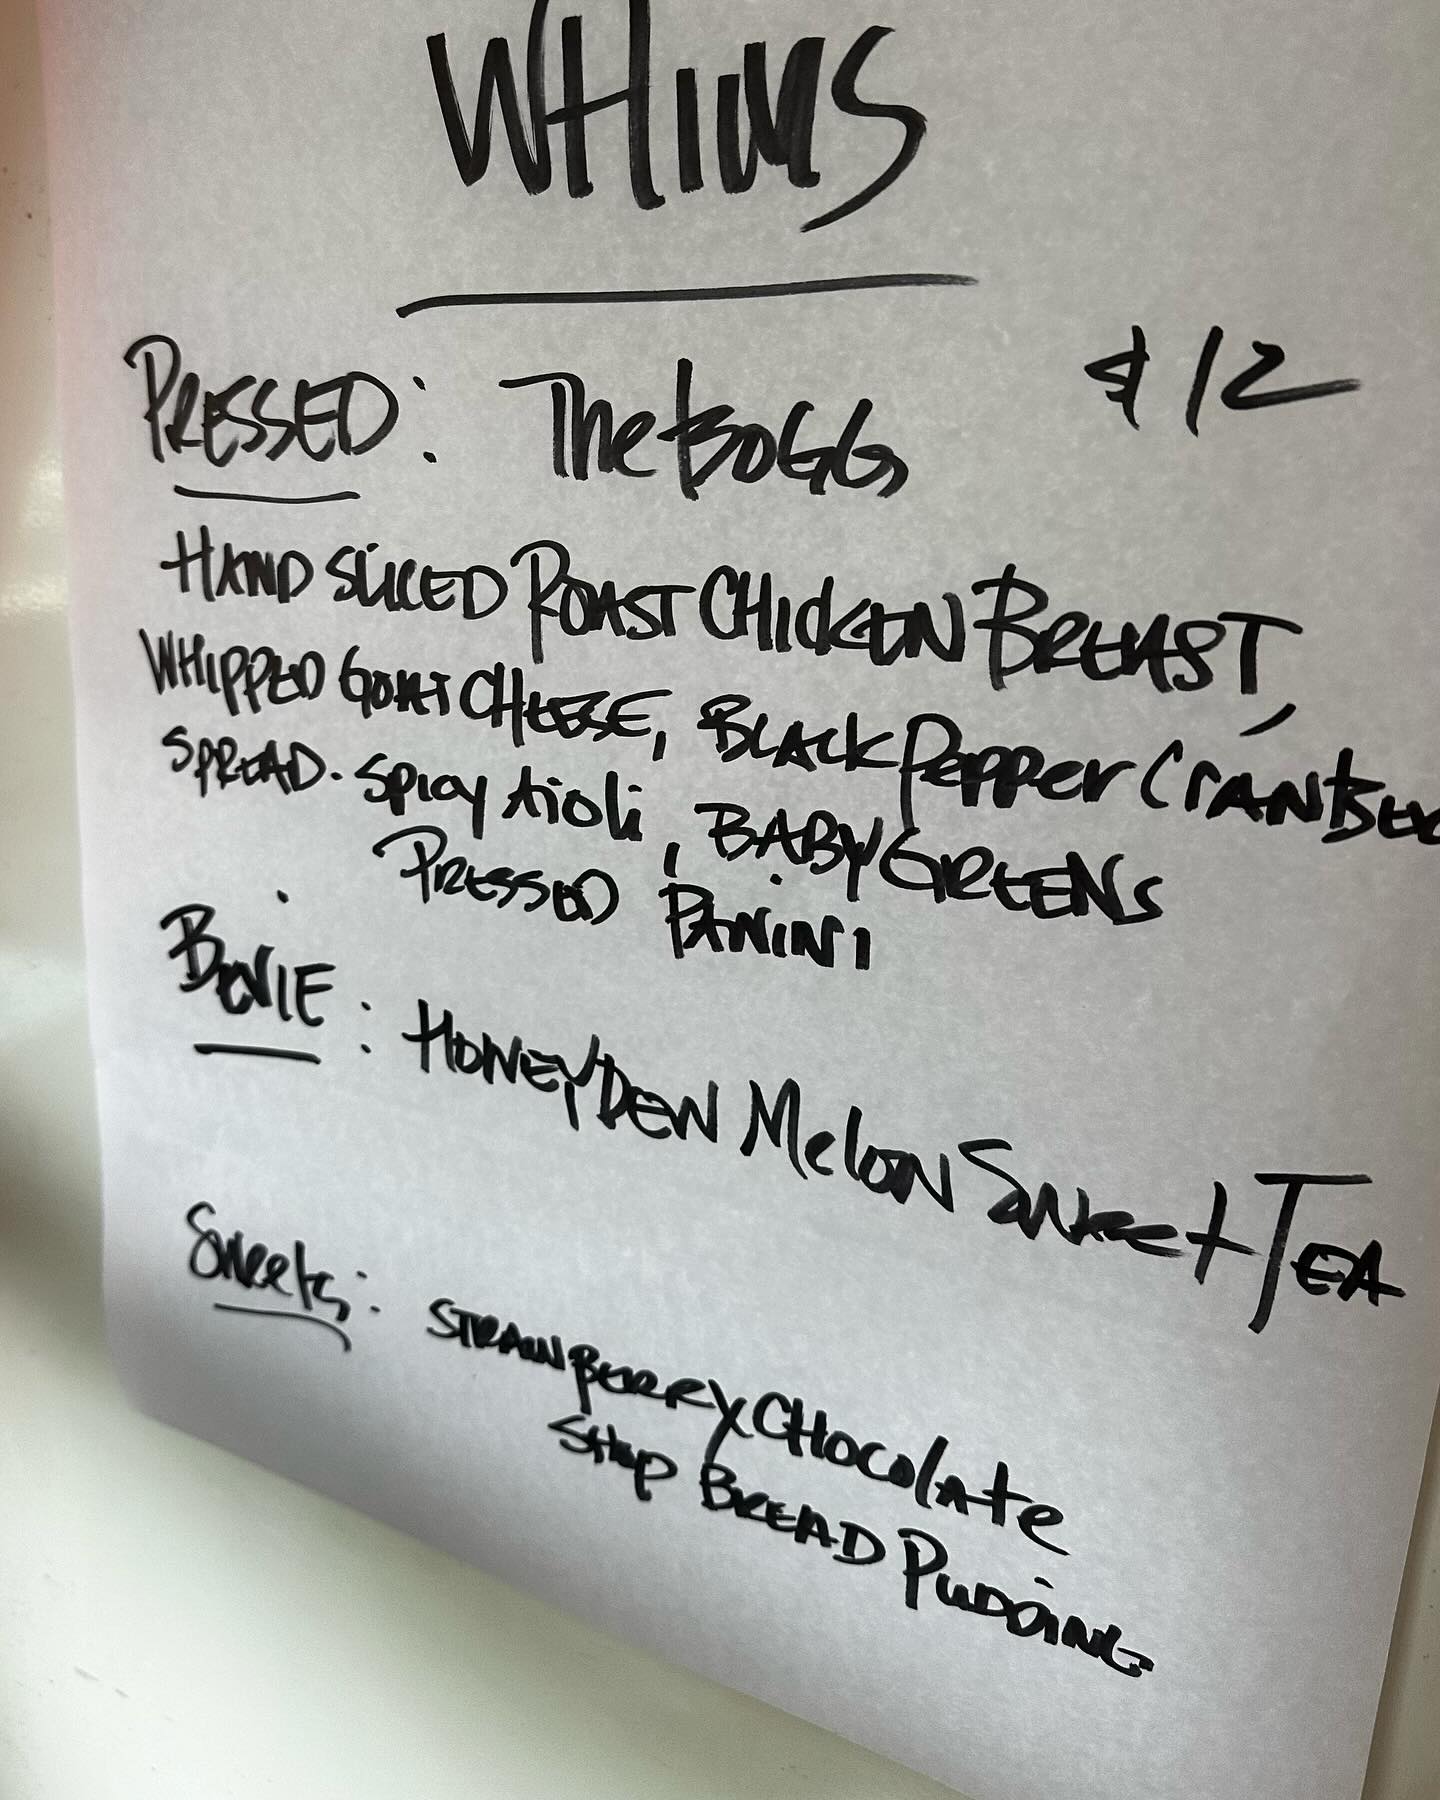 WHIMS
PRESSED: The BOGG $12
HAND SLICED ROAST CHICKEN BREAST,
WHIPPED GOAT CHEESE, BLACK PEPPER CRANBE
SPREAD. SPICY AIOLI, BABY GREENS
PRESSED PANINI
BEVIE: HONEYDEW MELON SWEET TEA
Sweets: STRAWBERRY CHOCOLATE
CHIP BREAD PUDDING